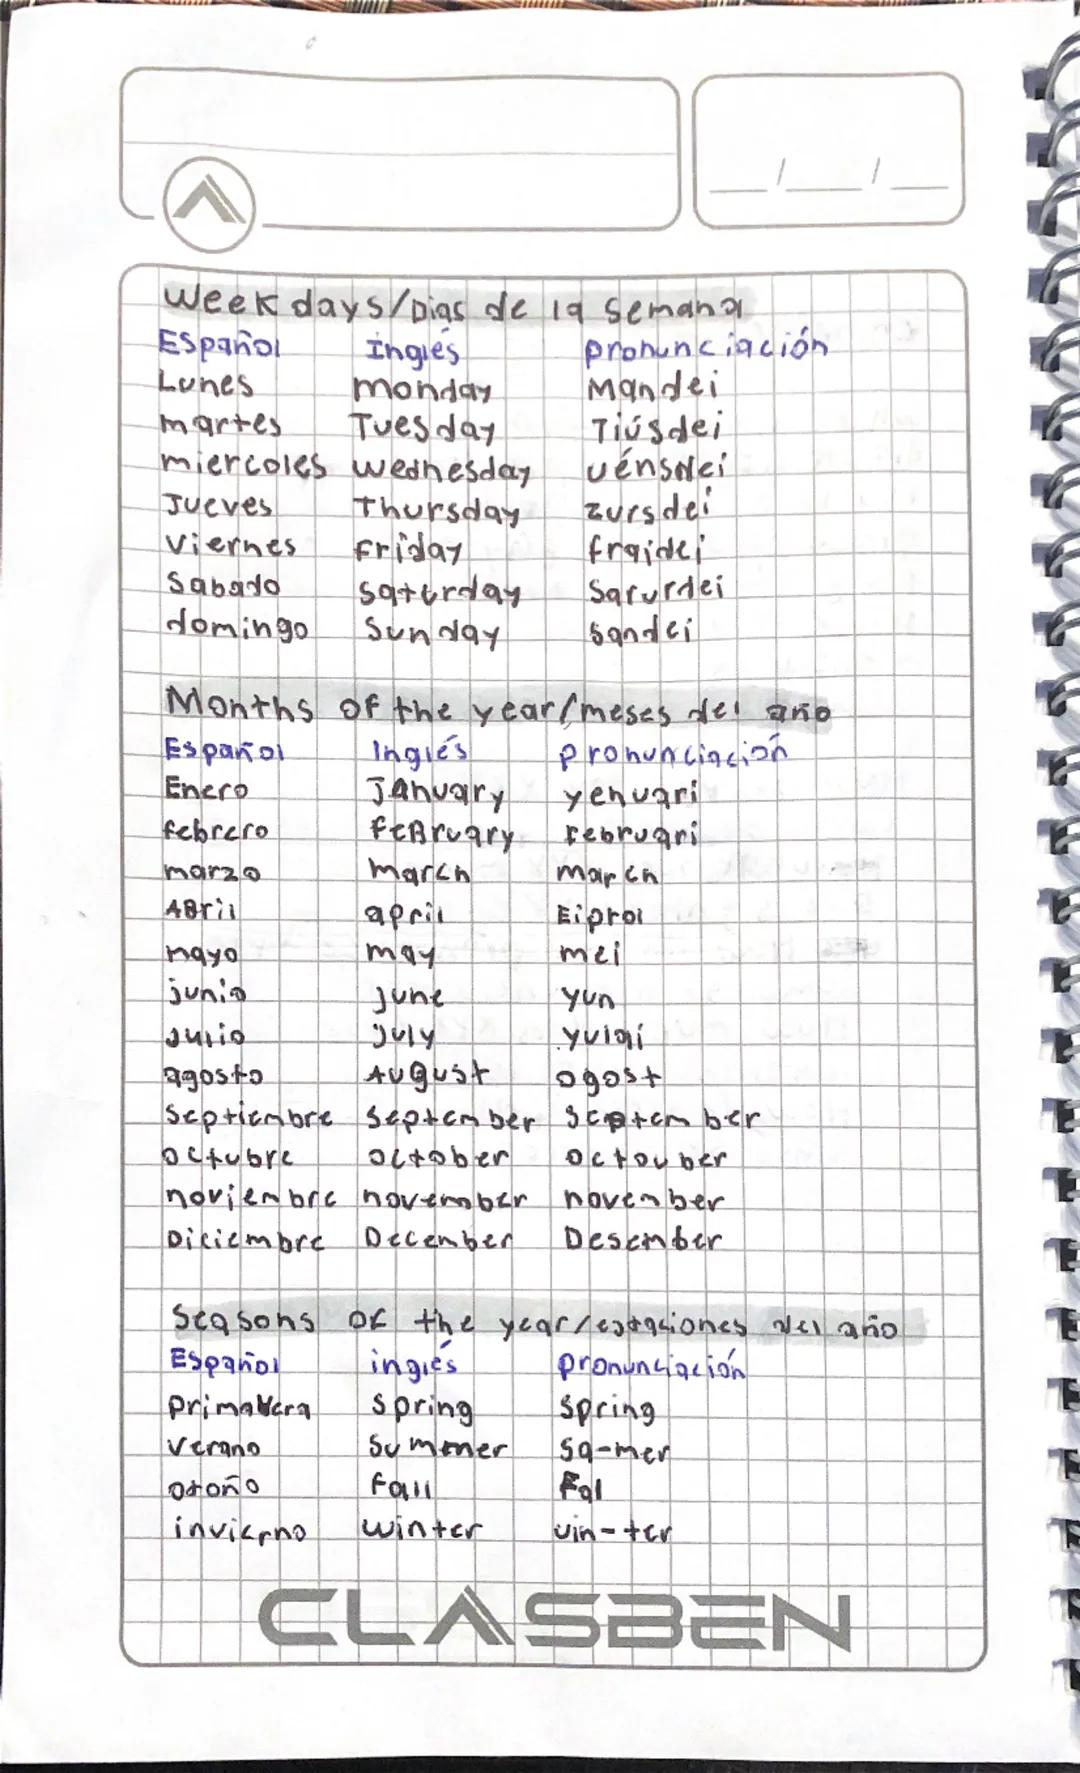 Week days/Dias de la semana
Español Inglés pronunciación
Lunes monday Mandei
martes Tuesday Tiúsdei
miercoles wednesday uénsdei
Jueves Thursday zursdei
Viernes Friday fraidei
Sabado saturday Sarurdei
domingo Sunday sandei
Months of the year/meses del año
Español Inglés pronunciación
Enero JAnuary yenuari
febrero feBruary februari
marzo march march
ABril april Eiprol
mayo may mei
junio june yun
Julio July yulai
agosto August ogost
septiembre september september
octubre october octouber
noviembre november november
Diciembre December Desember
Seasons of the year/estaciones del año
Español inglés pronunciación
primavera spring spring
verano summer sa-mer
otoño fall Fal
invierno winter uin-ter
CLASBEN